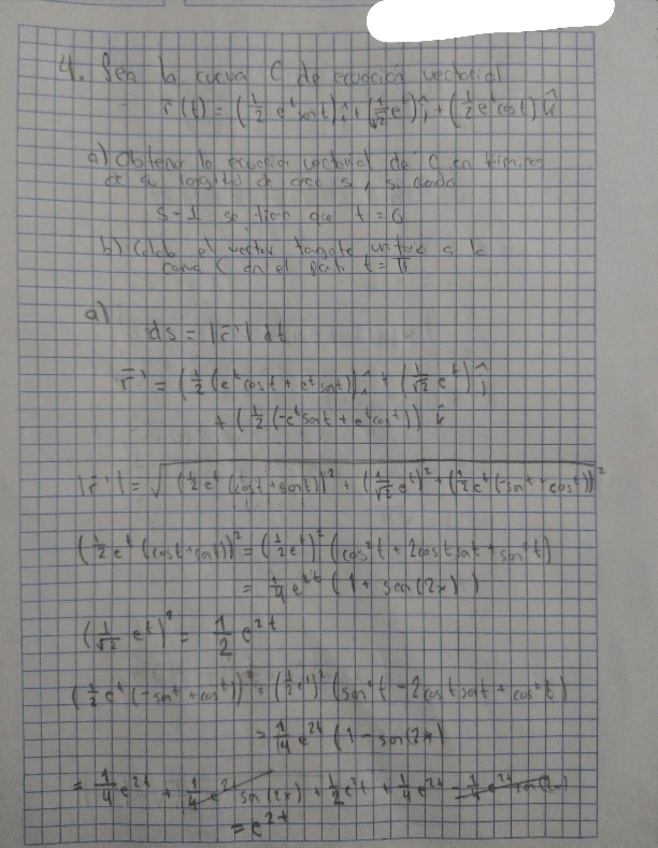 4. Sea la curva C de ecuación vectorial
r̄(t) = (1/2 e^t sent) î + (1/√2 e^t) ĵ + (1/2 e^t cost) k̂
a) Obtener la ecuación vectorial de C en términos
de la longitud de arco s, si cuando
s=1 se tiene que t=0
b) Calcule el vector tangente unitario a la
curva C en el punto t=π
a)
ds = |r̄'| dt
r̄' = (1/2 (e^t cost + e^t sent)) î + (1/√2 e^t) ĵ
+ (1/2 (-e^t sent + e^t cost)) k̂
|r̄'| = √((1/2 e^t (cost + sent))² + (1/√2 e^t)² + (1/2 e^t (-sent + cost))²
(1/2 e^t (cost + sent))² = (1/2 e^t)² (cos²t + 2cost sent + sen²t)
= 1/4 e^2t (1 + sen(2x))
(1/√2 e^t)² = 1/2 e^2t
(1/2 e^t (-sent + cost))² = (1/2 e^t)² (sen²t - 2cost sent + cos²t)
= 1/4 e^2t (1 - sen(2x)
= 1/4 e^2t + 1/4 e^2t sen(2x) + 1/2 e^2t + 1/4 e^2t - 1/4 e^2t sen(2x)
= e^2t